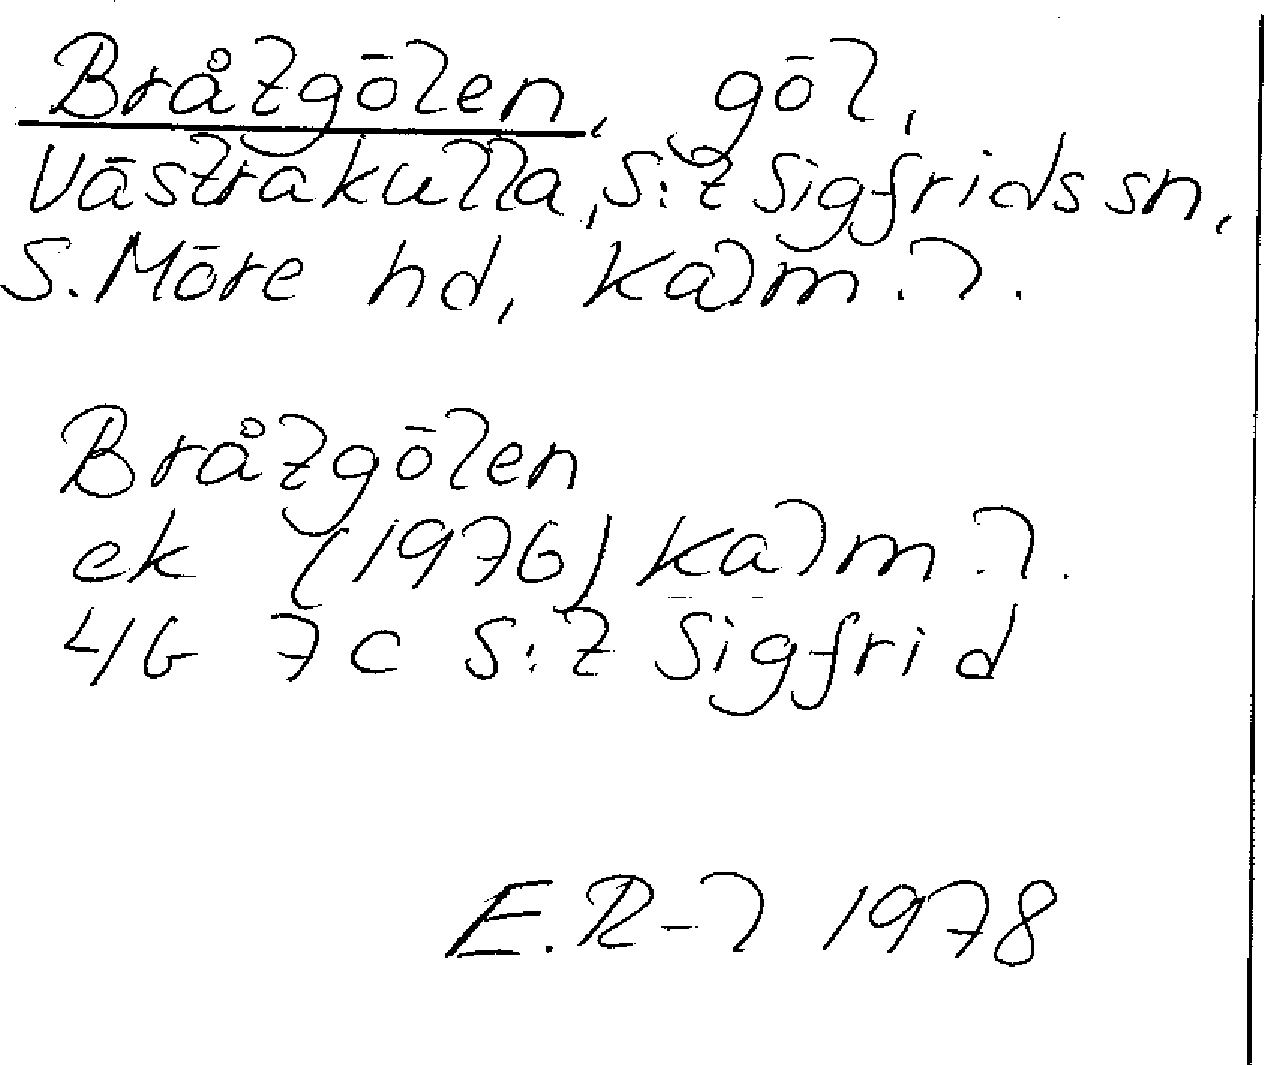 Bråtgölen, göl,
Västrakulla, S:t Sigfrids sn,
S. Möre hd, Kalm. l.
Bråtgölen
ek (1976) Kalm. l.
4G 7c S:t Sigfrid
E.R-l 1978